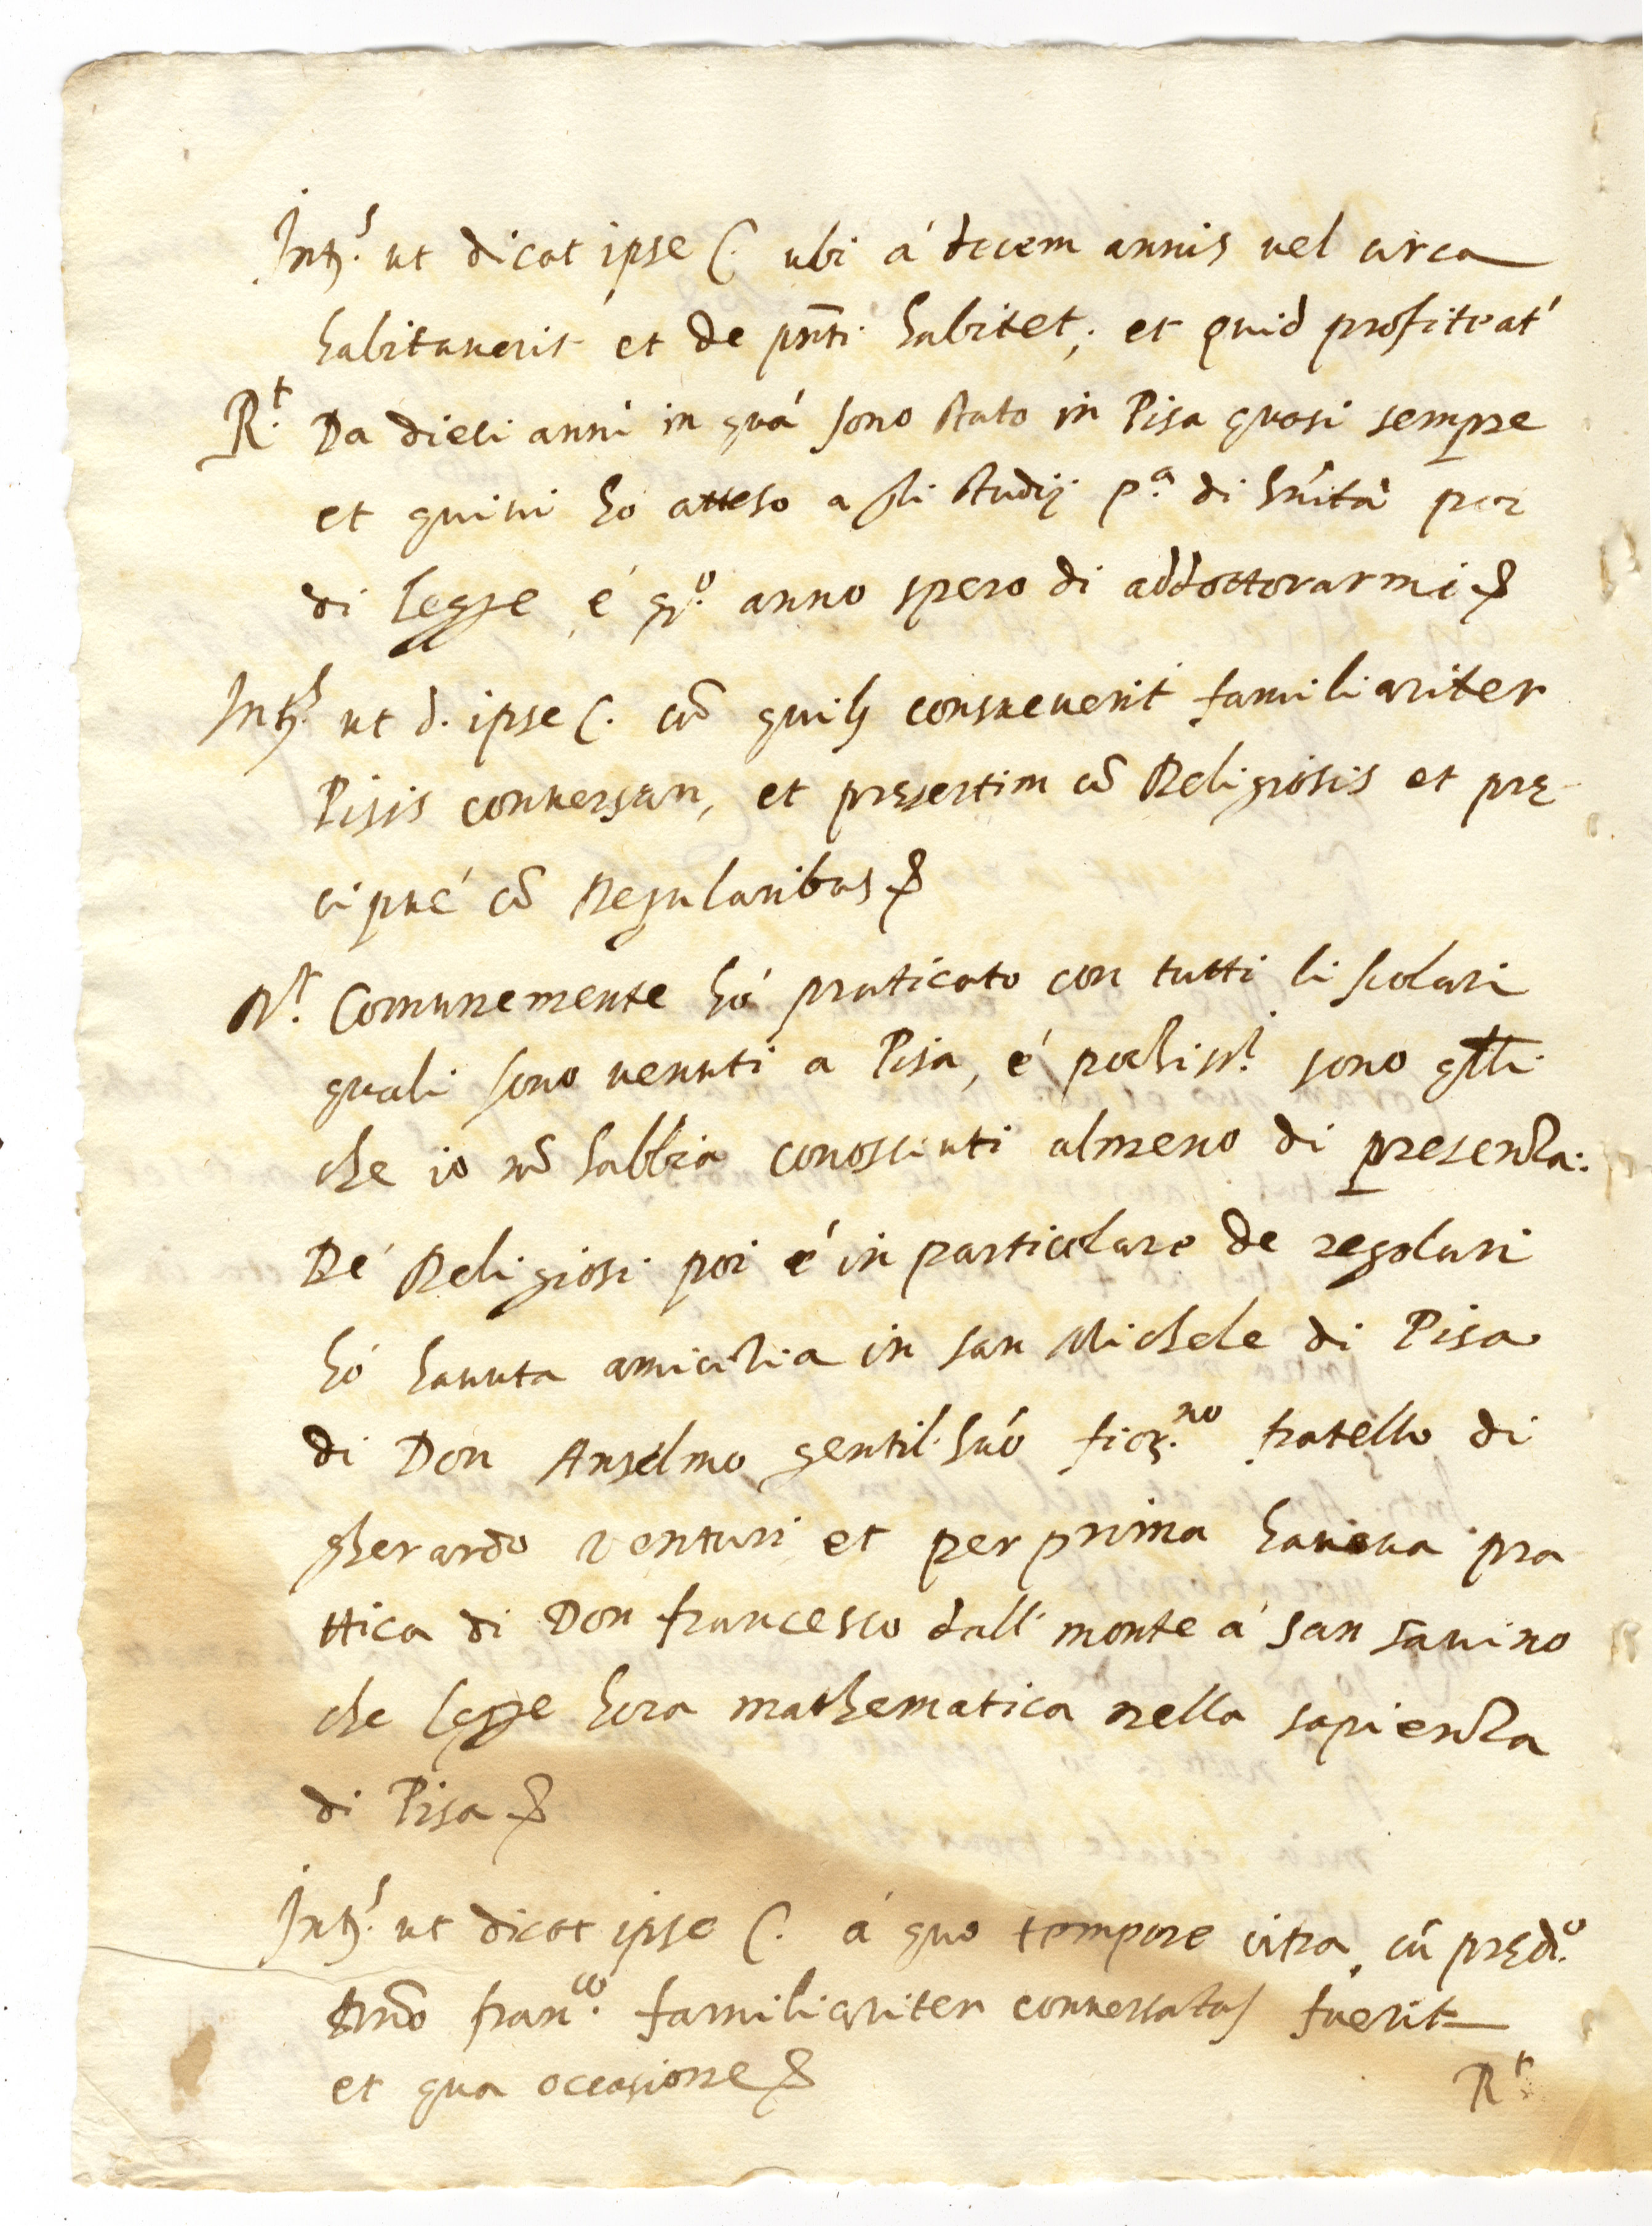 Int.s ut dicat ipse C. ubi á decem annis vel circa
habitaverit et de pnti habitet, et quid profiteat'
R.t Da dieci anni in quá sono stato in Pisa quasi sempre
et quivi ho atteso a gli studij p.a di hu'ita' poi
di legge é q.o anno spero di addottorarmi
Int.s ut d. ipse C. cũ quibus consueverit familiariter
Pisis conversari, et pręsertim cũ Religiosis et prę
cipué cũ Regularibus
R.t Comunemente hó praticato con tutti li scolari
quali sono venuti a Pisa, é pochiss.i sono qlli
che io nõ habbia conosciuti almeno di presenza:
Dé Religiosi poi é in particolare de regolari
hó havuta amicitia in san Michele di Pisa
di Don Anselmo gentil'huó fior.no fratello di
gherardo Venturi et per prima haveva pra
ttica di Don francesco dall' monte á san savino
che legge hora mathematica nella sapienza
di Pisa
Int.s ut dicat ipse C. á quo tempore citra, cũ pręd.o
Dño fran.co familiariter conversatus fuerit
et qua occasione
R.t